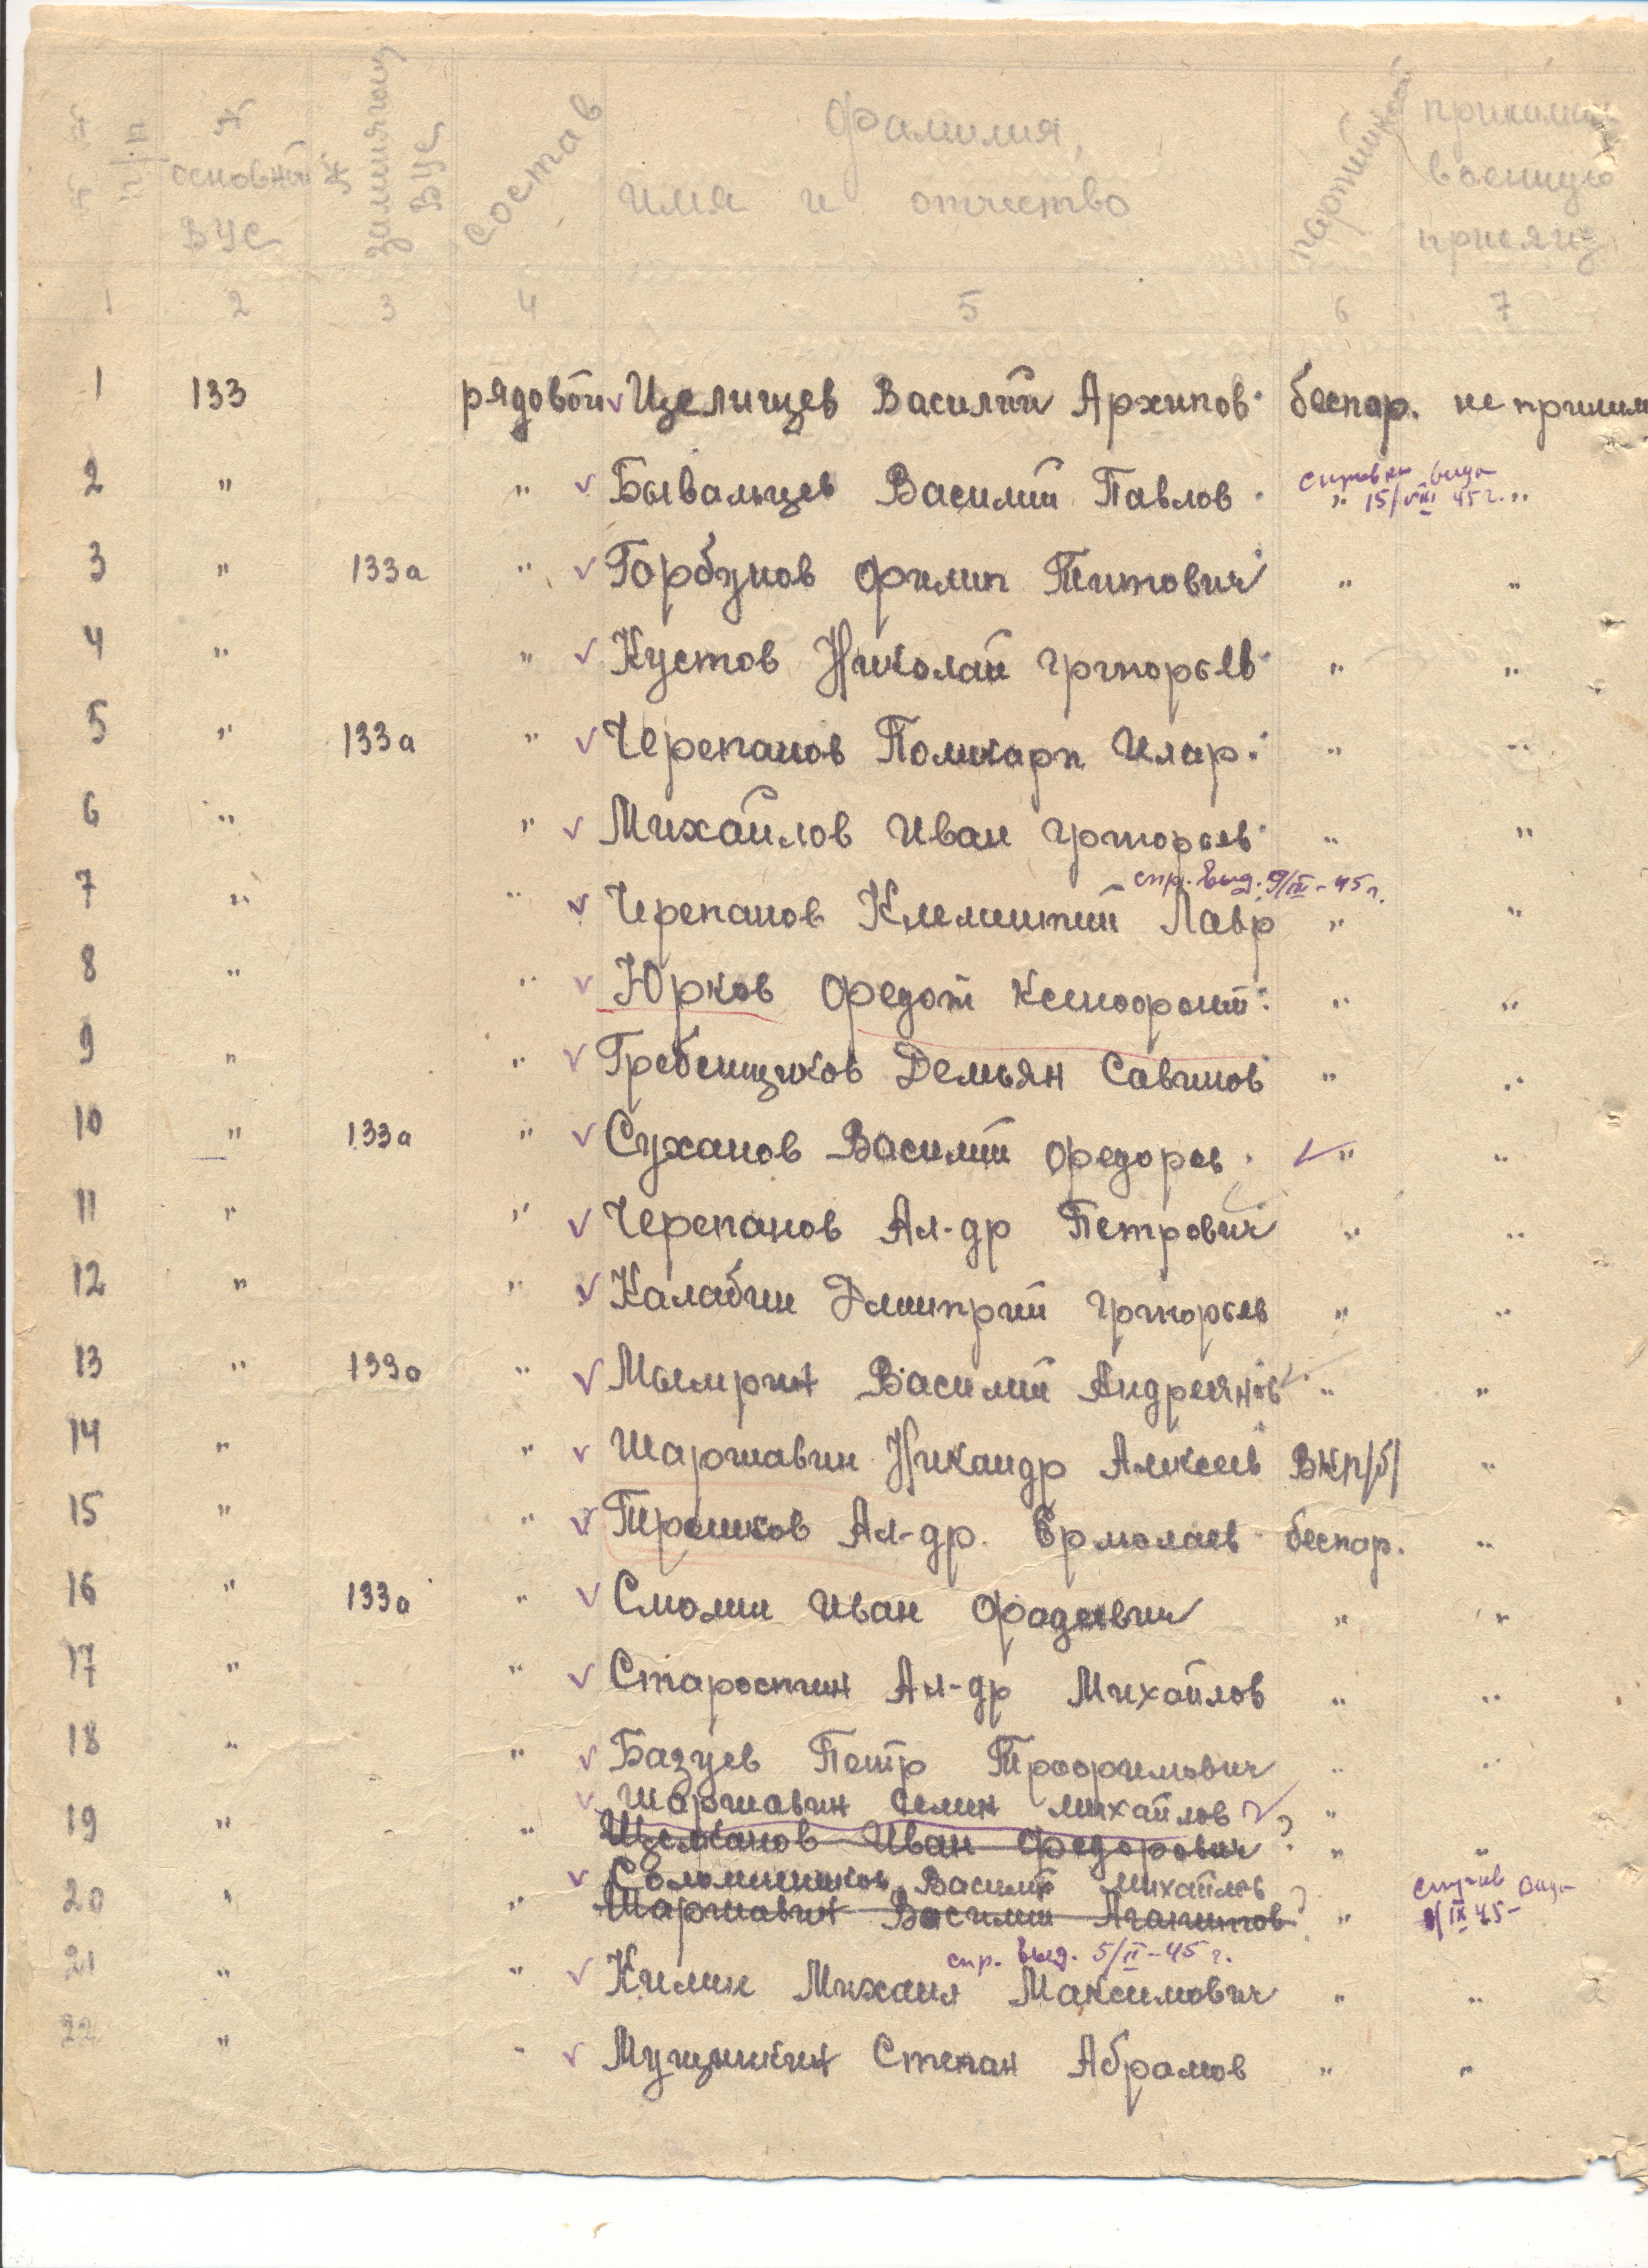 № № п/п № основной ВУС № заменяющ ВУС состав Фамилия, имя и отчество партийность принимал военную присягу
1 2 3 4 5 6 7
1 133 рядовой √ Целищев Василий Архипов. беспар. не приним
справка выда
2 " " √ Бывальцев Василий Павлов. " 15/VIII 45 г. "
3 " 133а " √ Горбунов Филип Титович " "
4 " " √ Кустов Николай Григорьев " "
5 " 133а " √ Черепанов Поликарп Илар. " "
6 " " √ Михайлов Иван Григорьев " "
спр. выд. 9/IX-45 г.
7 " " √ Черепанов Клементий Лавр " "
8 " " √ Юрков Федот Ксенофонт. " "
9 " " √ Гребенщиков Демьян Савинов " "
10 " 133а " √ Суханов Василий Федоров. √ " "
11 " " √ Черепанов Ал-др Петрович " "
12 " " √ Калабин Дмитрий Григорьев " "
13 " 133а " √ Мымрин Василий Андреянов " "
14 " " √ Шаршавин Никандр Алексеев ВКП/б/ "
15 " " √ Трошков Ал-др. Ермолаев беспар. "
16 " 133а " √ Смолин Иван Фадеевич " "
17 " " √ Старостин Ал-др Михайлов " "
18 " " √ Базуев Петр Трофимович " "
√ Шаршавин Семен Михайлов √
19 " " Иван Федорович ? " "
√ Василий Михайлов
20 " " Шаршавин Василий Агапитов ? " IX 45
спр. выд. 5/II-45 г.
21 " " √ Килин Михаил Максимович " "
22 " " √ Степан Абрамов " "